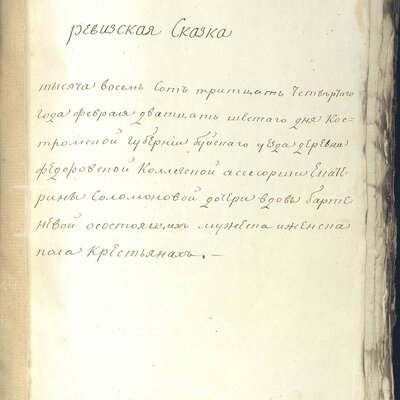 ревизская Сказка
тысяча восемь Сотъ тритцать Четвертого
Года февраля дватцать шестаго дня Кос-
тромской Губернiи буйскаго уезда деревни
Федоровской Коллежской ассесорши Екате-
рины Соломоновой дочери вдовы барте-
невой осостоящихъ мужеска иженска
пола Крестьянахъ. —